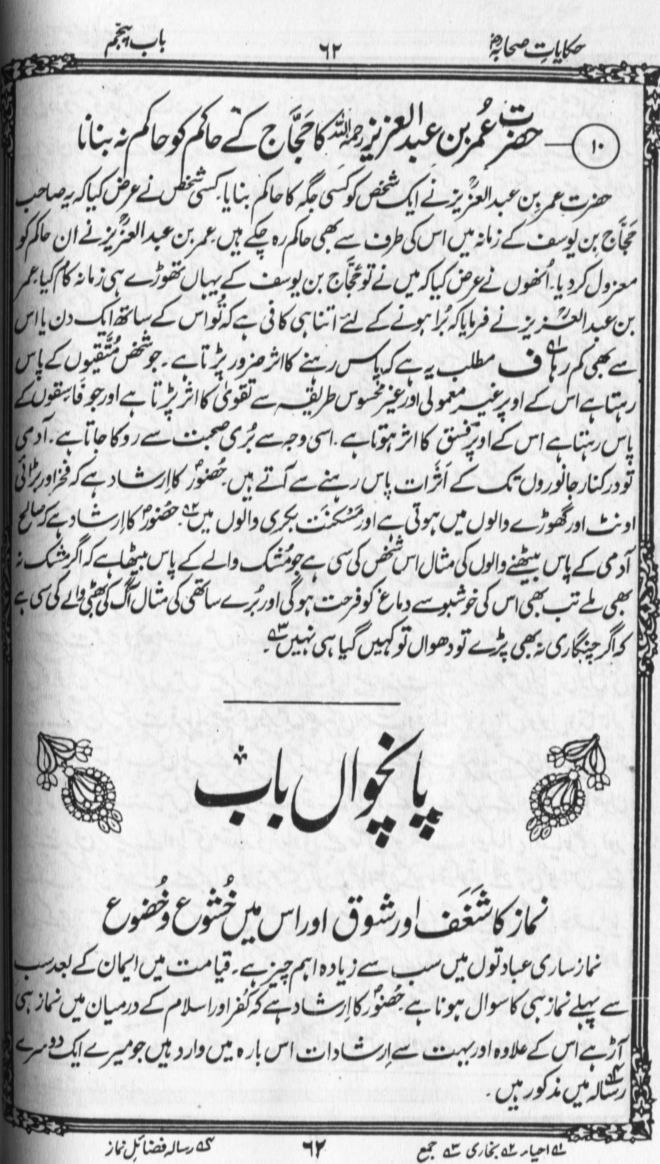 حکایاتِ صحابہؓ ۶۲ باب پنجم
۱۰ — حضرت عمر بن عبدالعزیز رحمہ اللہ کا حَجَّاج کے حاکم کو حاکم نہ بنانا
حضرت عمر بن عبدالعزیزؒ نے ایک شخص کو کسی جگہ کا حاکم بنایا۔ کسی شخص نے عرض کیا کہ یہ صاحب
حَجَّاج بن یوسف کے زمانہ میں اس کی طرف سے بھی حاکم رہ چکے ہیں۔ عمر بن عبدالعزیزؒ نے ان حاکم کو
معزول کر دیا۔ اُنھوں نے عرض کیا کہ میں نے تو حَجَّاج بن یوسف کے یہاں تھوڑے ہی زمانہ کام کیا۔ عمر
بن عبدالعزیزؒ نے فرمایا کہ بُرا ہونے کے لئے اتنا ہی کافی ہے کہ تُو اس کے ساتھ ایک دن یا اس
سے بھی کم رہا۱؎ ف مطلب یہ ہے کہ پاس رہنے کا اثر ضرور پڑتا ہے۔ جو شخص مُتَّقیوں کے پاس
رہتا ہے اس کے اوپر غیر معمولی اور غیر محسوس طریقہ سے تقویٰ کا اثر پڑتا ہے اور جو فاسِقوں کے
پاس رہتا ہے اس کے اوپر فِسق کا اثر ہوتا ہے۔ اسی وجہ سے بُری صحبت سے روکا جاتا ہے۔ آدمی
تو درکنار جانوروں تک کے اَثَرات پاس رہنے سے آتے ہیں۔ حُضورؐ کا اِرشاد ہے کہ فخر اور بڑائی
اونٹ اور گھوڑے والوں میں ہوتی ہے اور مَسْکَنَت بکری والوں میں۲؎۔ حضورؐ کا اِرشاد ہے کہ صالح
آدمی کے پاس بیٹھنے والوں کی مثال اس شخص کی سی ہے جو مُشک والے کے پاس بیٹھا ہے کہ اگر مشک نہ
بھی ملے تب بھی اس کی خوشبو سے دماغ کو فرحت ہوگی اور بُرے ساتھی کی مثال آگ کی بھٹی والے کی سی ہے
کہ اگر چنگاری نہ بھی پڑے تو دھواں تو کہیں گیا ہی نہیں۳؎۔
پانچواں باب
نماز کا شَغَف اور شوق اور اس میں خُشوع و خُضوع
نماز ساری عبادتوں میں سب سے زیادہ اہم چیز ہے۔ قیامت میں ایمان کے بعد سب
سے پہلے نماز ہی کا سوال ہونا ہے۔ حُضورؐ کا اِرشاد ہے کہ کُفر اور اسلام کے درمیان میں نماز ہی
آڑ ہے اس کے علاوہ اور بہت سے اِرشادات اس بارہ میں وارد ہیں جو میرے ایک دوسرے
رسالہ۴؎ میں مذکور ہیں۔
۱؎ احیاء ۲؎ بخاری ۳؎ جمع ۶۲ ۴؎ رسالہ فضائل نماز